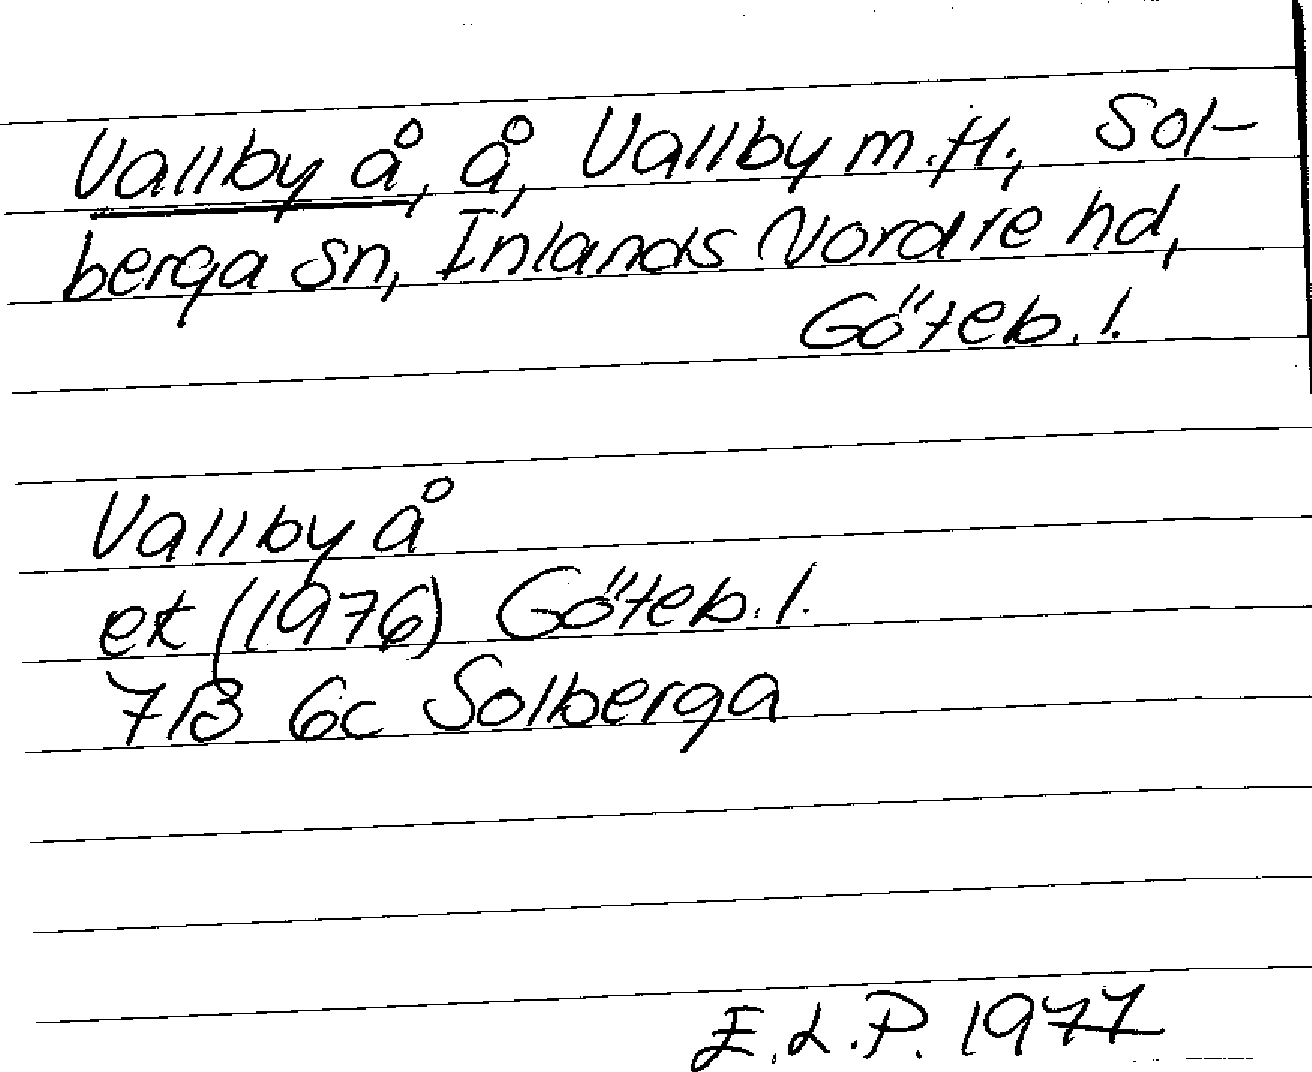 Vallby å, å, Vallby m.fl., Sol-
berga sn, Inlands Nordre hd,
Göteb. l.
Vallby å
ek (1976) Göteb. l.
7B 6c Solberga
E.L.P. 1977